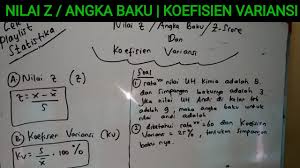 NILAI Z / ANGKA BAKU | KOEFISIEN VARIANSI
Cek
Playlist
Statistika
Nilai Z / Angka Baku / Z-Score
Dan
Koefisien Variansi
(A) Nilai Z (Z)
Z = x - x̄
s
(B) Koefisien Variansi (KV)
KV = s/x̄ . 100%
Soal
1) rata² nilai UH Kimia adalah 8.
dan simpangan bakunya adalah 3.
Jika nilai UH Andi di kelas
adalah 9, maka angka baku untuk
nilai adalah
2) diketahui rata² = 60 dan Koefisien
Variansi = 25%, tentukan simpangan
baku nya.